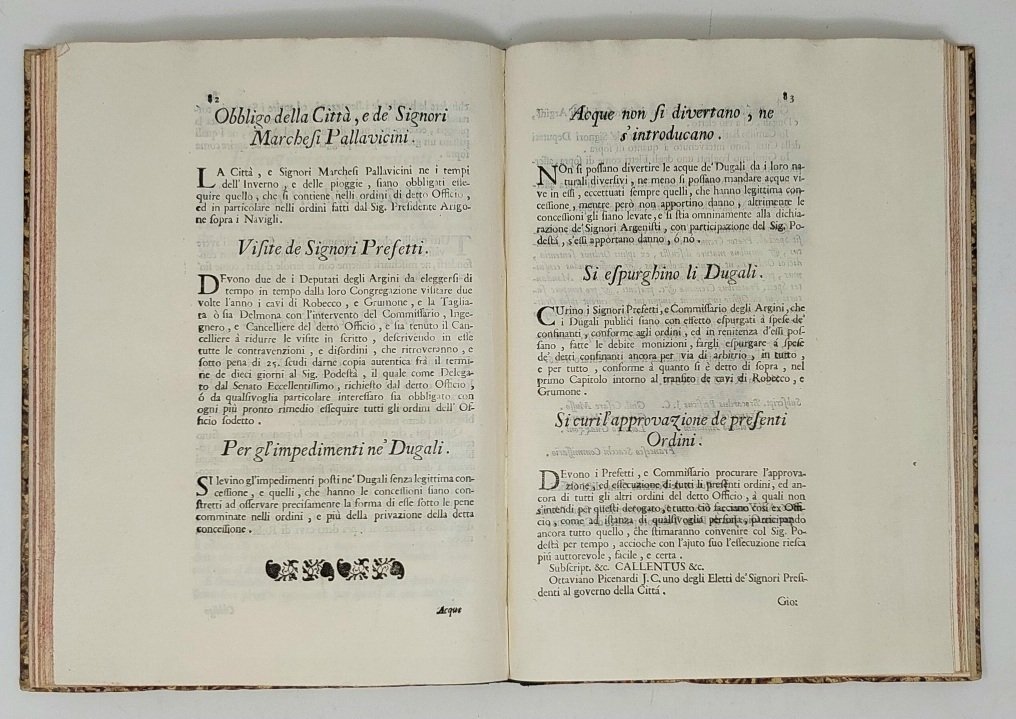 82
Obbligo della Città, e de' Signori
Marchesi Pallavicini.
LA Città, e Signori Marchesi Pallavicini ne i tempi
dell'Inverno, e delle pioggie, siano obbligati esse-
quire quello, che si contiene nelli ordini di detto Officio,
ed in particolare nelli ordini fatti dal Sig. Presidente Arigo-
ne sopra i Navigli.
Visite de Signori Prefetti.
DEvono due de i Deputati degli Argini da eleggersi di
tempo in tempo dalla loro Congregazione visitare due
volte l'anno i cavi di Robecco, e Grumone, e la Taglia-
ta ò sia Delmona con l'intervento del Commissario, Inge-
gnero, e Cancelliere del detto Officio, e sia tenuto il Can-
celliere à ridurre le visite in scritto, descrivendo in esse
tutte le contravenzioni, e disordini, che ritroveranno, e
sotto pena di 25. scudi darne copia autentica frà il termi-
ne de dieci giorni al Sig. Podestà, il quale come Delega-
to dal Senato Eccellentissimo, richiesto dal detto Officio,
ó da qualsivoglia particolare interessato sia obbligato con
ogni più pronto rimedio essequire tutti gli ordini dell'Of-
ficio sodetto.
Per gl'impedimenti ne' Dugali.
SI levino gl'impedimenti posti ne' Dugali senza legittima con-
cessione, e quelli, che hanno le concessioni siano con-
stretti ad osservare precisamente la forma di esse sotto le pene
comminate nelli ordini, e più della privazione della detta
concessione.
Acque
83
Acque non si divertano, ne
s'introducano.
NOn si possano divertire le acque de' Dugali da i loro na-
turali diversivi, ne meno si possano mandare acque vi-
ve in essi, eccettuati sempre quelli, che hanno legittima con-
cessione, mentre però non apportino danno, altrimente le
concessioni gli siano levate, e si stia omninamente alla dichia-
razione de' Signori Argenisti, con participazione del Sig. Po-
destà, s'essi apportano danno, ó nò.
Si espurghino li Dugali.
CUrino i Signori Prefetti, e Commissario degli Argini, che
i Dugali publici siano con effetto espurgati à spese de'
confinanti, conforme agli ordini, ed in renitenza d'essi pos-
sano, fatte le debite monizioni, fargli espurgare á spese
de' detti confinanti ancora per via di arbitrio, in tutto,
e per tutto, conforme à quanto si è detto di sopra, nel
primo Capitolo intorno al transito de cavi di Robecco, e
Grumone.
Si curi l'approvazione de presenti
Ordini.
DEvono i Prefetti, e Commissario procurare l'approva-
zione, ed essecuzione di tutti li presenti ordini, ed an-
cora di tutti gli altri ordini del detto Officio, à quali non
s'intendi per questi derogato, e tutto ciò facciano così ex Offi-
cio, come ad istanza di qualsivoglia persona, participando
ancora tutto quello, che stimaranno convenire col Sig. Po-
destà per tempo, accioche con l'ajuto suo l'essecuzione riesca
piú auttorevole, facile, e certa.
Subscript. &c. CALLENTUS &c.
Ottaviano Picenardi J.C. uno degli Eletti de' Signori Presi-
denti al governo della Cittá.
Gio: